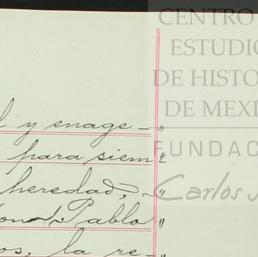 CENTRO
ESTUDIO
DE HISTO
DE MEXI
FUNDAC
Carlos
l y enage-"
para siem"
heredad,-"
Don Pablo"
os, la re-"